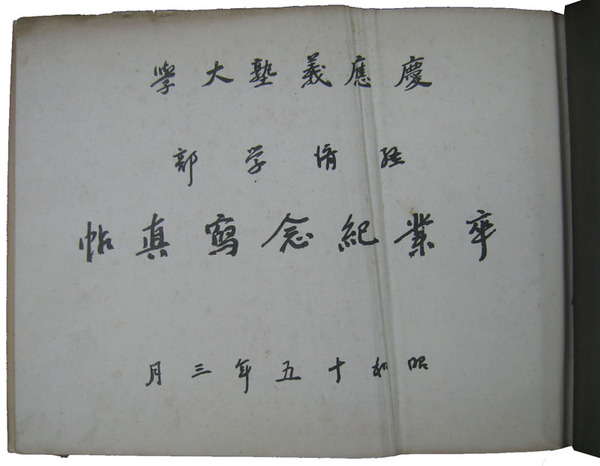 慶應義塾大學
経済学部
卒業紀念寫真帖
昭和十五年三月